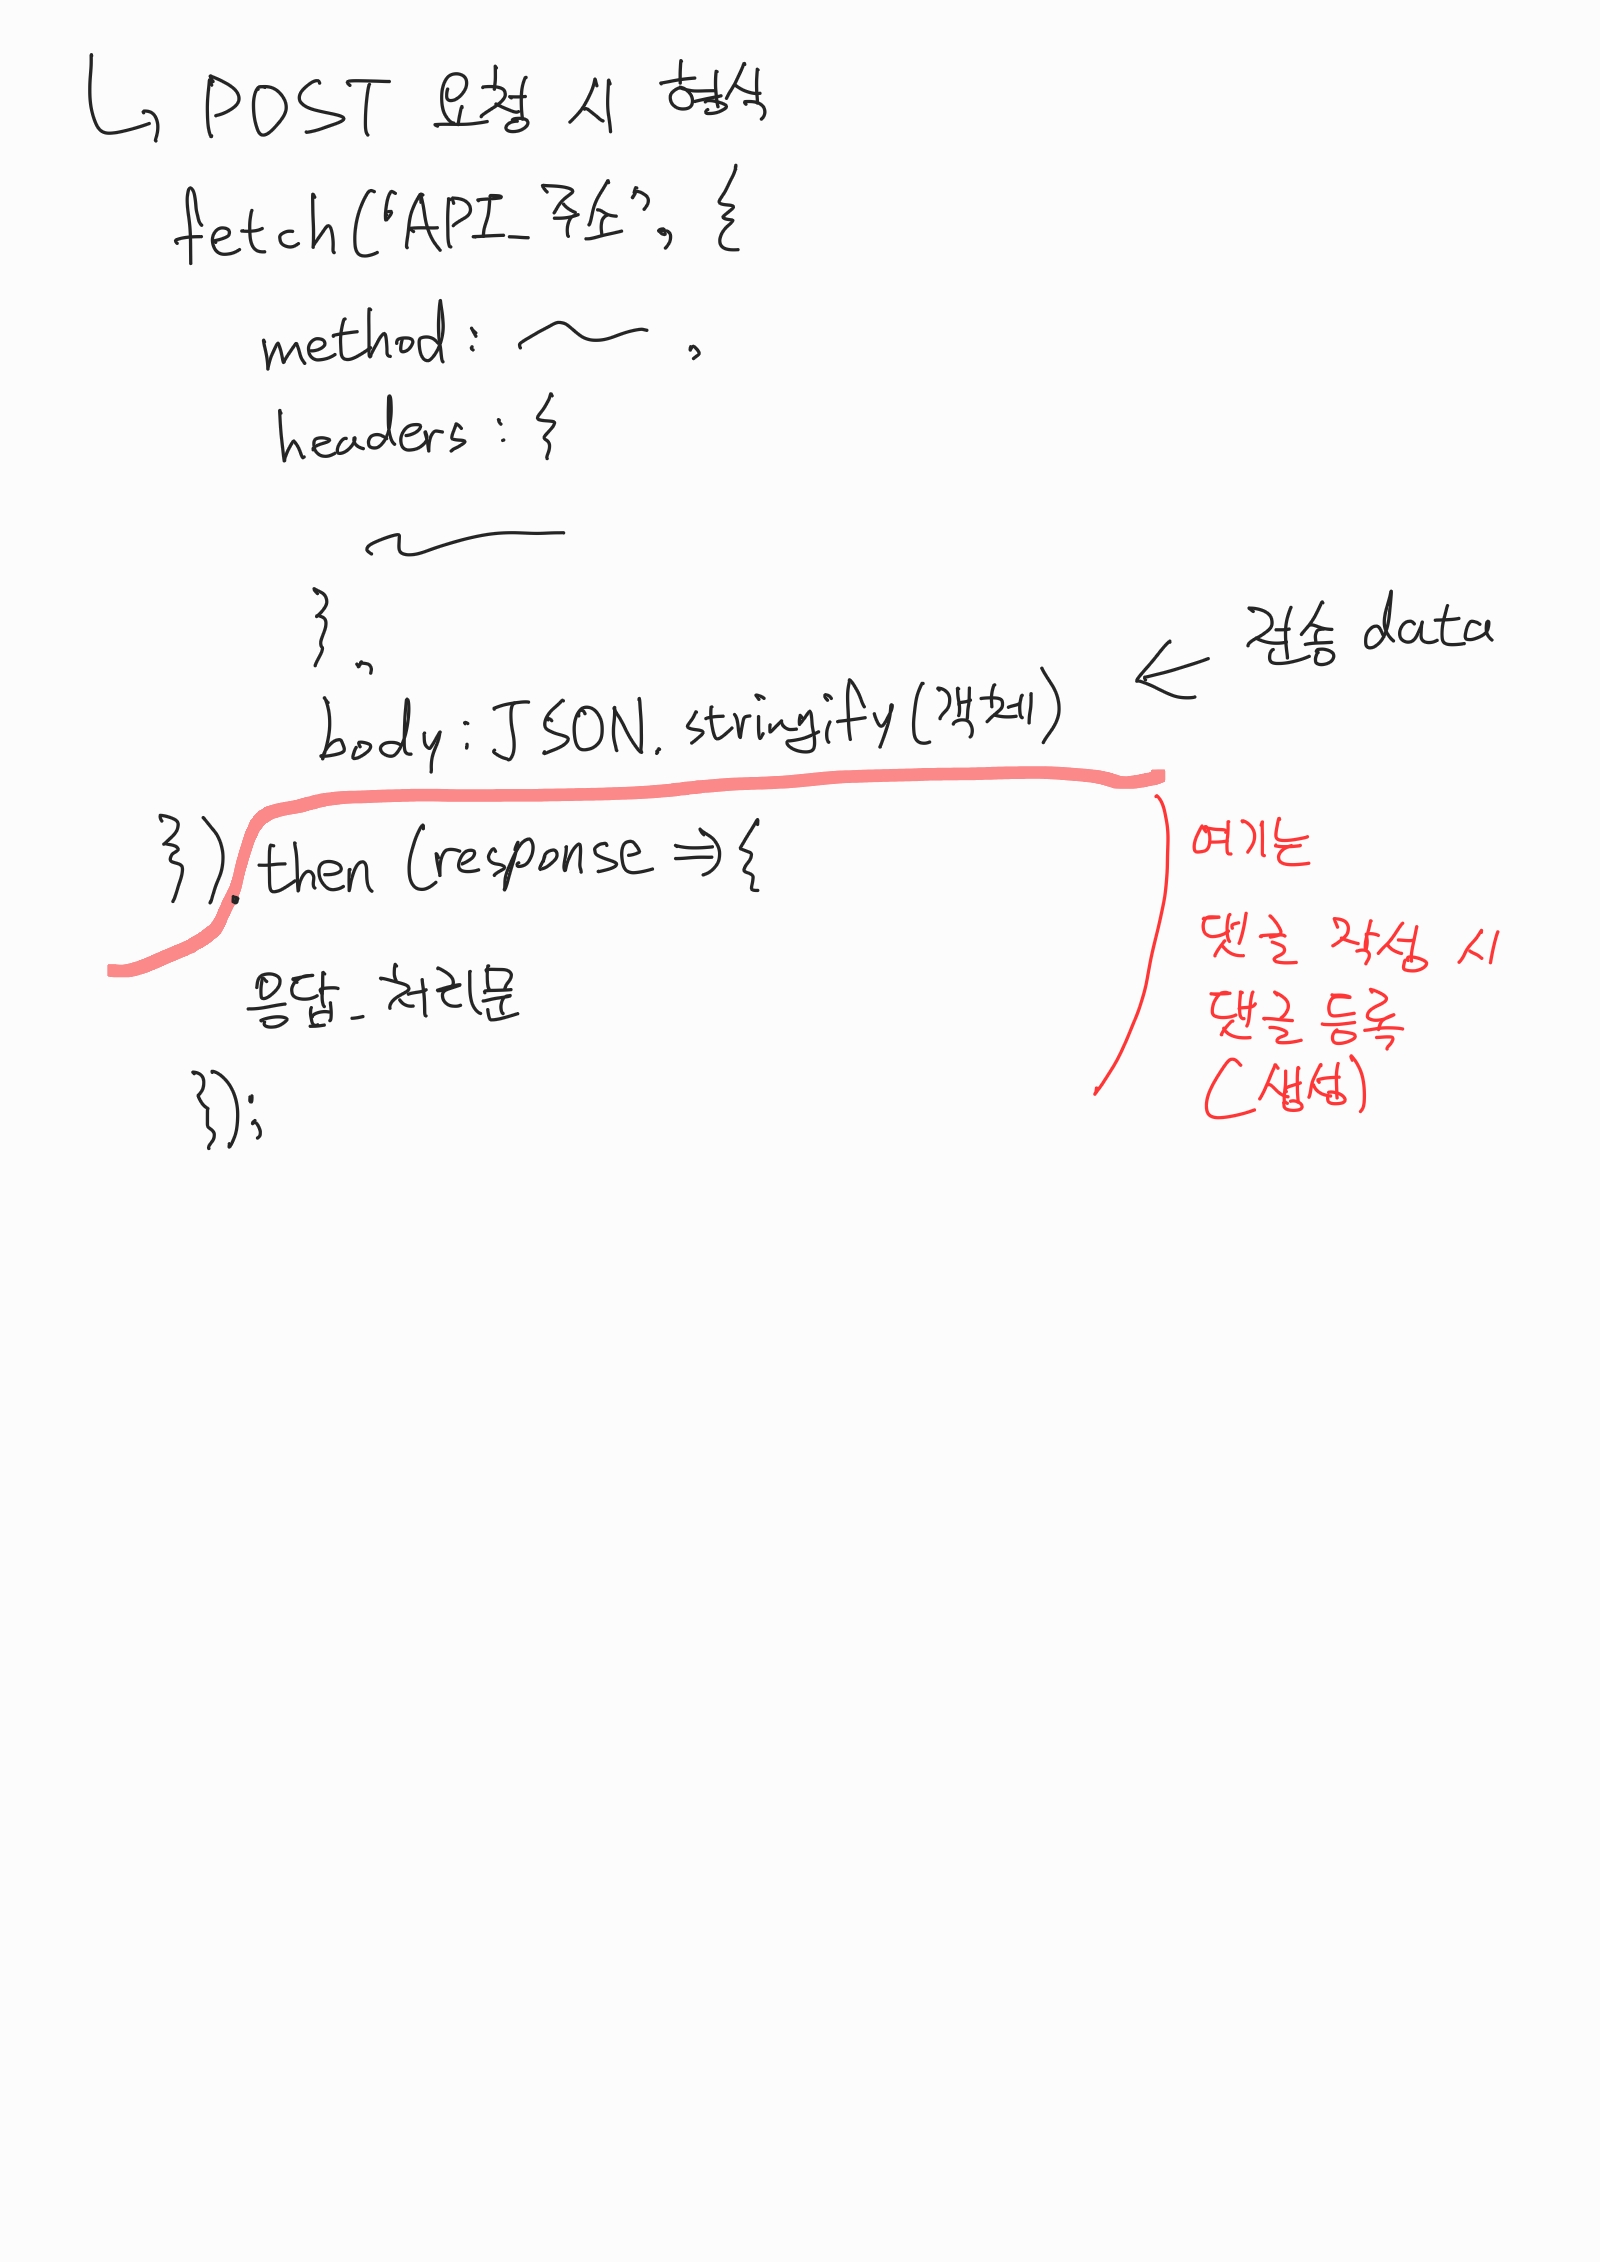 ↳ POST 요청 시 형식
fetch("API_주소", {
method : ~ ,
headers : {
~
},
body : JSON. stringify (객체)
← 전송 data
}). then (response => {
응답_처리문
});
여기는
댓글 작성 시
댓글 등록
(생성)